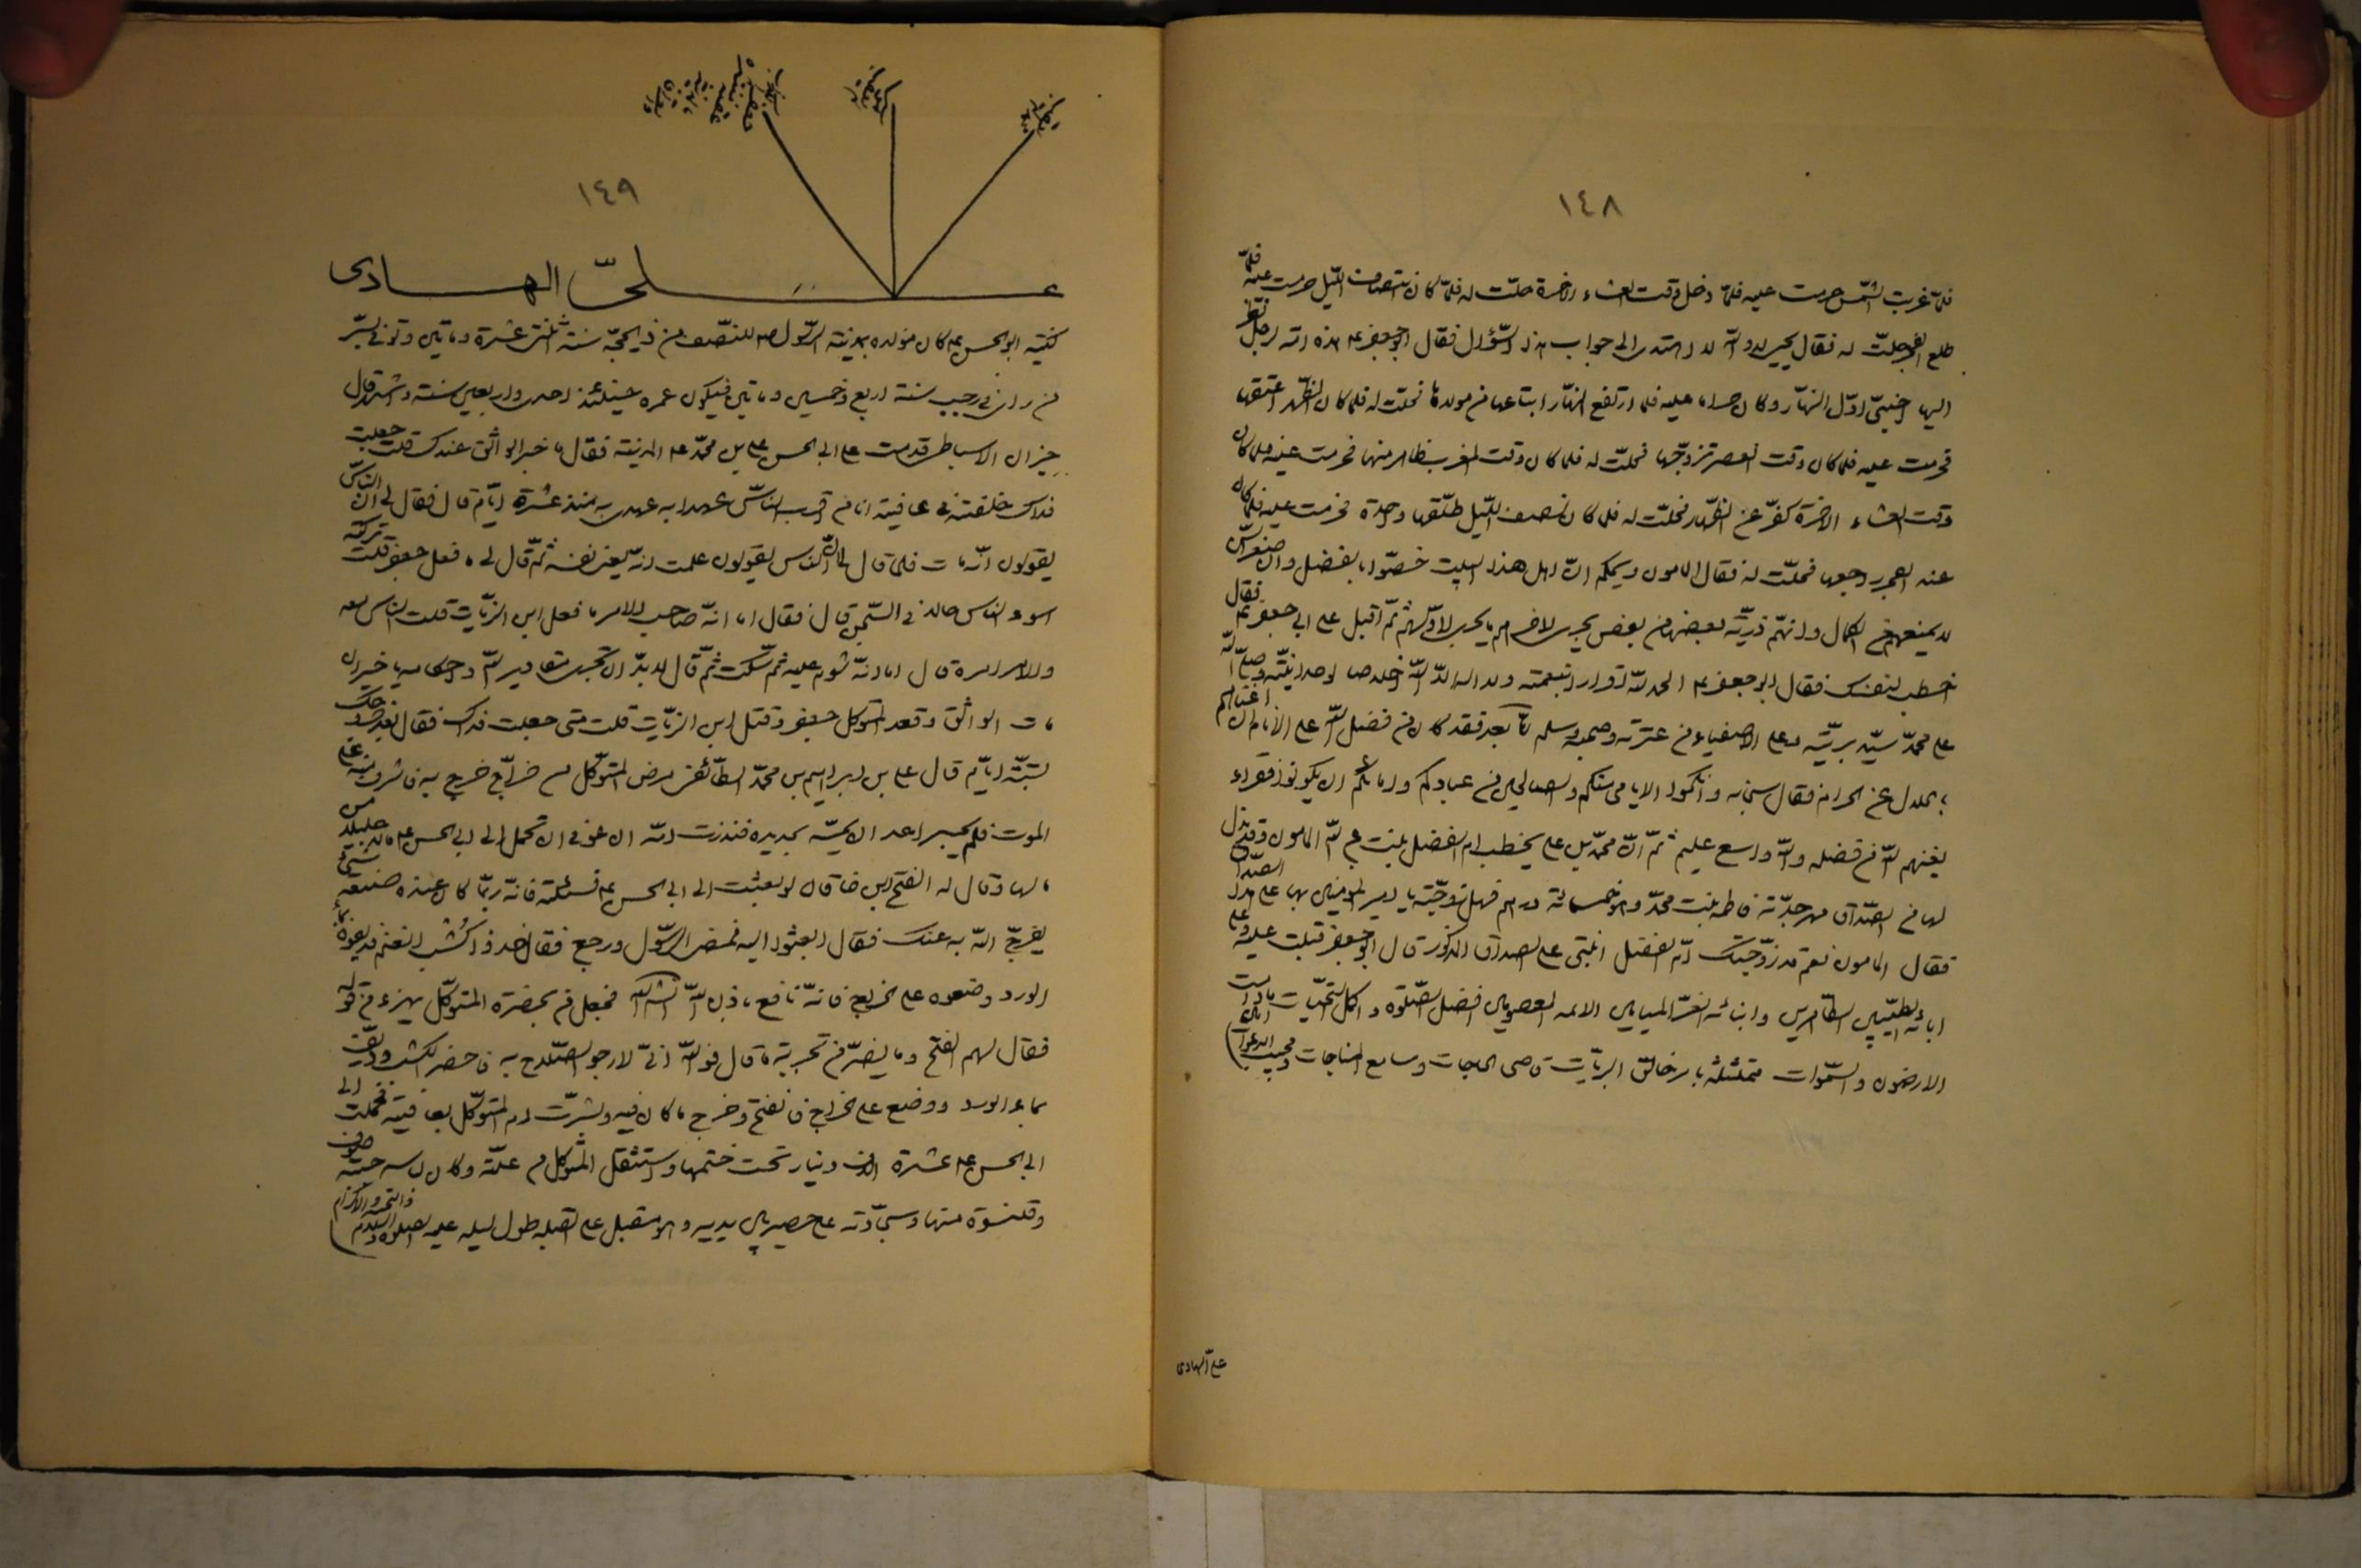 ١٤٨
فلمّا غربت الشّمس حرمت عليه فلمّا دخل وقت العشاء الاخرة حلّت له فلمّا كان انتصاف اللّيل حرمت عليه فلمّا
طلع الفجر حلّت له فقال يحيى لا والله لا اهتدى الى جواب هذا السّؤال فقال ابو جعفر ع هذه امة لرجل نظر
اليها اجنبيّ اوّل النهار وكان حراما عليه فلما ارتفع النهار ابتاعها من مولاها فحلّت له فلما كان الظّهر اعتقها
فحرمت عليه فلما كان وقت العصر تزوّجها فحلّت له فلما كان وقت المغرب ظاهر منها فحرمت عليه فلما كان
وقت العشاء الاخرة كفّر عن الظّهار فحلّت له فلما كان نصف اللّيل طلّقها واحدة فحرمت عليه فلما كان
عند الفجر راجعها فحلّت له فقال المامون ويحكم انّ اهل هذا البيت خصّوا بالفضل وانّ صغر السنّ
لا يمنعهم من الكمال وانهم ذريّة بعضها من بعض يجرى لاخرهم ما يجرى لاوّلهم ثمّ اقبل على ابى جعفر ع فقال
اخطب لنفسك فقال ابو جعفر ع الحمد لله اقرارا بنعمته ولا اله الّا الله اخلاصا لوحدانيّته وصلّى الله
على محمّد سيّد بريّته وعلى الاصفياء من عترته وصحبه وسلم امّا بعد فقد كان من فضل الله على الأنام ان اغناهم
بالحلال عن الحرام فقال سبحانه وانكحوا الايامى منكم والصالحين من عبادكم وامائكم ان يكونوا فقراء
يغنهم الله من فضله والله واسع عليم ثمّ انّ محمّد بن على يخطب ام الفضل بنت عبد الله المامون وقد بذل
لها من الصّداق مهر جدّته فاطمة بنت محمّد وهو خمسمائة درهم فهل زوجّته يا امير المؤمنين بها على هذا الصّداق
فقال المامون نعم قد زوّجتك امّ الفضل ابنتى على الصداق المذكور قال ابو جعفر قبلت عليه وعلى
ابائه الطيّبين الطّاهرين وابنائه الغرّ الميامين الائمه المعصومين افضل الصّلوة واكمل التحيّات ما دامت
الارضون والسّموات متمثّلة بامر خالق البريّات قاضى الحاجات وسامع المناجات ومجيب الدعوات امين
على الهادى
١٤٩
علىّ الهادى
كنيته ابو الحسن ع كان مولده بمدينة الرّسول ص للنصف من ذى الحجّه سنة اثنتى عشرة ومأتين وتوفى بسرّ
من راى فى رجب سنة اربع وخمسين ومأتين فيكون عمره حينئذ احدى واربعين سنة واشهر قال
خيران الاسباطى قدمت على ابى الحسن على بن محمّد ع المدينة فقال ما خبر الواثق عندك قلت جعلت
فداك خلفته فى عافية انا من اقرب الناس عهدا به عهدى به منذ عشرة ايّام قال فقال لى انّ الناسّ
يقولون انّه مات فلما قال لى انّ النّاس يقولون علمت انّه يعنى نفسه ثمّ قال لى ما فعل جعفر قلت تركته
اسوء الناس حالا فى السّجن قال فقال اما انّه صاحب الامر ما فعل ابن الزيّات قلت الناس معه
والامر امره قال اما انّه شوم عليه ثمّ سكت ثمّ قال لا بدّ ان تجرى مقادير الله واحكامه يا خيران
مات الواثق وقعد المتوكل جعفر وقتل ابن الزيّات قلت متى جعلت فداك فقال بعد خروجك
بستّة ايّام قال على بن ابراهيم بن محمّد الطّائفى مرض المتوكّل من خراج خرج به فاشرف منه على
الموت فلم يجسر احد ان يمسّه بحديدة فنذرت امّه ان عوفى ان تحمل الى ابى الحسن ع مالا جليلا من
مالها وقال له الفتح بن خاقان لو بعثت الى ابى الحسن ع فسئلته فانّه ربّما كان عنده صنعة شئ
يفرّج الله به عنك فقال ابعثوا اليه فمضى الرّسول ورجع فقال خذوا كُسْب الغنم فديفوه بماء
الورد وضعوه على الخراج فانّه نافع باذن الله انشاء الله فجعل من بحضرة المتوكّل يهزء من قوله
فقال لهم الفتح وما يضرّ من تجربة ما قال فوالله انّى لارجو الصّلاح به فاحضر الكسب وديف
بماء الورد ووضع على الخراج فانفتح وخرج ما كان فيه وبشرّت ام المتوكّل بعافيته فحملت الى
ابى الحسن ع عشرة الاف دينار تحت ختمها واستقل المتوكل من علّته وكان لباسه جبّة صوف
وقلنسوة منها وسجّادته على حصير بين يديه وهو مقبل على القبله طول ليله عليه الصلوة والسلام